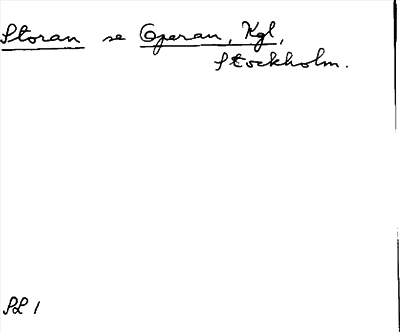 Storan se Operan, Kgl,
Stockholm.
SL 1